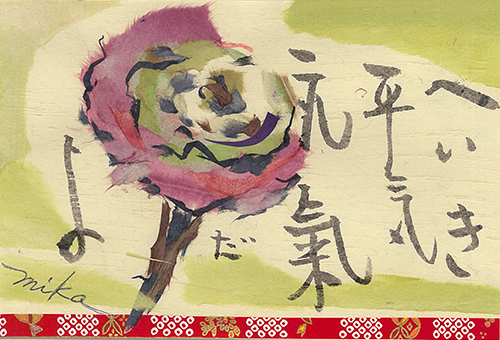 へいき
平気
元氣
だ
よ
mika